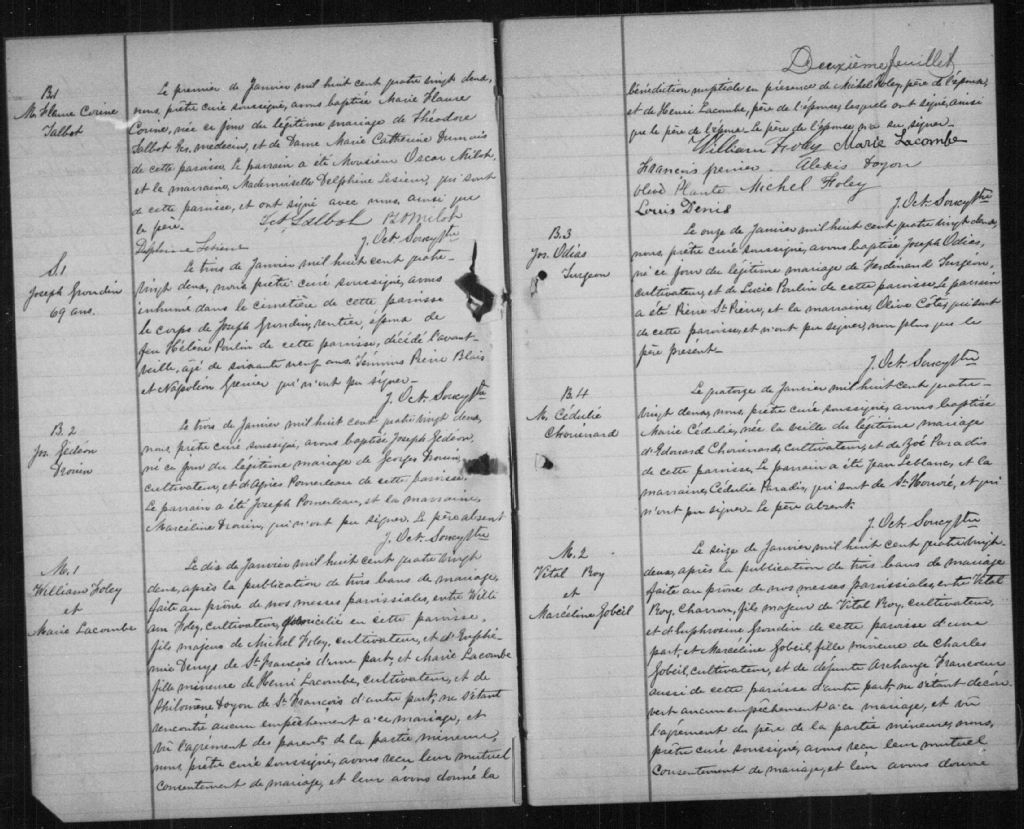 B.1
M. Flaure Corine
Talbot
Le premier de Janvier mil huit cent quatre vingt deux,
nous, prêtre curé soussigné, avons baptisé Marie Flaure
Corine, née ce jour du légitime mariage de Théodore
Talbot Grs. medecin, et de Dame Marie Catherine Dumais
de cette paroisse. Le parrain a été Monsieur Oscar Milot,
et la marraine, Mademoiselle Delphine Lesieur, qui sont
de cette paroisse, et ont signé avec nous, ainsi que
le père.
Talbot
Milot
Delphine Lesieur
J. Oct. Soucy Ptre
S.1
Joseph Grondin
69 ans.
Le trois de Janvier mil huit cent quatre-
vingt deux, nous, prêtre curé soussigné, avons
inhumé dans le cimetière de cette paroisse
le corps de Joseph Grondin, rentier, époux de
feu Hélène Poulin de cette paroisse, décédé l'avant-
veille, agé de soixante neuf ans. Témoins Pierre Blais
et Napoléon Grenier qui n'ont pu signer.-
J. Oct. Soucy Ptre
B. 2
Jos. Gédéon
Drouin
Le trois de Janvier mil huit cent quatre vingt deux,
nous, prêtre curé soussigné, avons baptisé Joseph Gédéon,
né ce jour du légitime mariage de Georges Drouin,
cultivateur, et d'Agnès Pomerleau de cette paroisse.
Le parrain a été Joseph Pomerleau, et la marraine,
Marcéline Drouin, qui n'ont pu signer. Le père absent
J. Oct. Soucy Ptre
M. 1
William Foley
et
Marie Lacombe
Le dix de Janvier mil huit cent quatre vingt
deux, après la publication de trois bans de mariage,
faite au prône de nos messes paroissiales, entre Willi
am Foley, cultivateur, domicilié en cette paroisse,
fils majeur de Michel Foley, cultivateur, et d'Euphé-
mie Denys de St. François d'une part, et Marie Lacombe
fille mineure de Henri Lacombe, cultivateur, et de
Philomène Doyon de St. François d'autre part, ne s'étant
rencontré aucun empêchement à ce mariage, et
vû l'agrement des parents de la partie mineure,
nous, prêtre curé soussigné, avons reçu leur mutuel
consentement de mariage, et leur avons donné la
Deuxième feuillet
bénédiction nuptiale en présence de Michel Foley, père de l'époux,
et de Henri Lacombe, père de l'épouse, lesquels ont signé, ainsi
que le père de l'époux. Le père de l'épouse n'a su signer.
William Foley Marie Lacombe
Alexis Doyon
Plante Michel Foley
Louis Denis
J. Oct. Soucy Ptre
B.3
Jos. Odias
Turgeon
Le onze de Janvier mil huit cent quatre vingt deux,
nous, prêtre curé soussigné, avons baptisé Joseph Odias,
né ce jour du légitime mariage de Ferdinand Turgeon,
cultivateur, et de Lucie Poulin de cette paroisse. Le parrain
a été Pierre St. Pierre, et la marraine, Olive Côté, qui sont
de cette paroisse, et n'ont pu signer, non plus que le
père présent.-
J. Oct. Soucy Ptre
B.4
M. Cédulie
Chouinard
Le quatorze de Janvier mil huit cent quatre-
vingt deux, nous, prêtre curé soussigné, avons baptisé
Marie Cédulie, née la veille du légitime mariage
d'Edouard Chouinard, cultivateur, et de Zoé Paradis
de cette paroisse. Le parrain a été Jean Leblanc, et la
marraine, Cédulie Paradis, qui sont de St. Honoré, et qui
n'ont pu signer. Le père absent.
J. Oct. Soucy Ptre
M. 2
Vital Roy
et
Marcéline Gobeil
Le seize de Janvier mil huit cent quatre vingt
deux, après la publication de trois bans de mariage
faite au prône de nos messes paroissiales, entre Vital
Roy, Charron, fils majeur de Vital Roy, cultivateur,
et d'Euphrosine Grondin de cette paroisse d'une
part, et Marcéline Gobeil, fille mineure de Charles
Gobeil, cultivateur, et de défunte Archange Francoeur
aussi de cette paroisse d'autre part, ne s'étant décou
vert aucun empêchement à ce mariage, et vû
l'agrément du père de la partie mineure, nous,
prêtre curé soussigné, avons reçu leur mutuel
consentement de mariage, et leur avons donné